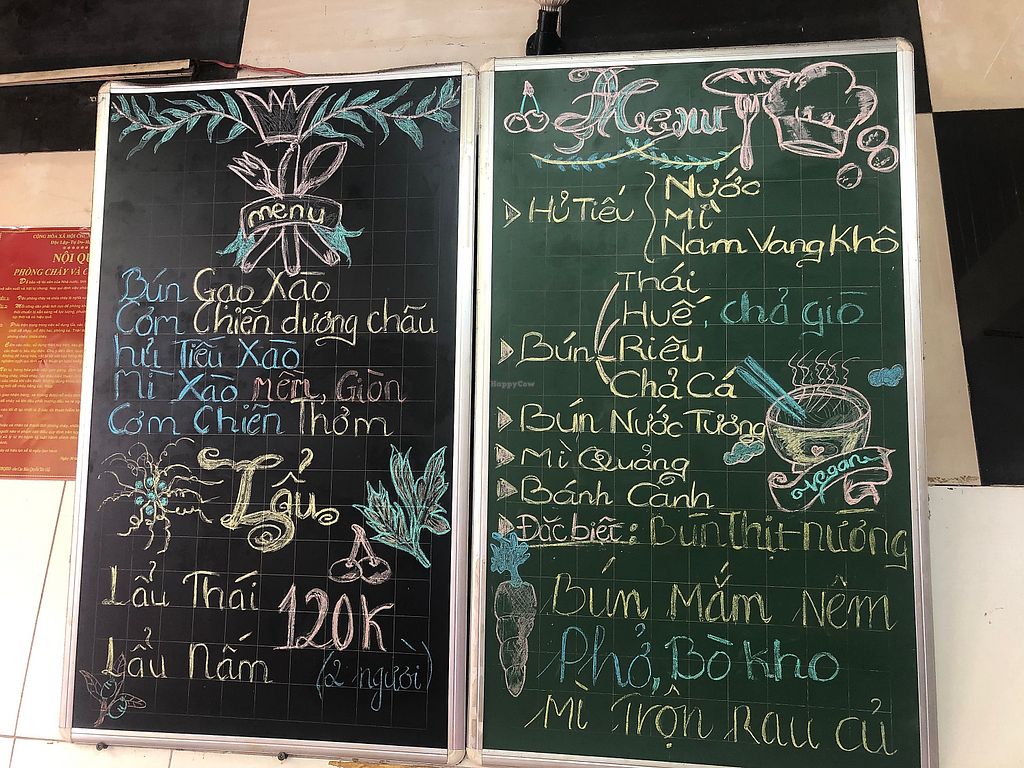 menu
Bún Gạo Xào
Cơm Chiên dương châu
hủ Tiếu Xào
Mì Xào mềm, Giòn
Cơm Chiên Thơm
Lẩu
Lẩu Thái
120K
Lẩu nấm (2 người)
Menu
Hủ Tiếu
Nước
Mì
Nam Vang Khô
Bún
Thái
Huế, chả giò
Riêu
Chả Cá
Bún Nước Tương
Mì Quảng
Bánh Canh
vegan
Đặc biệt: Bún Thịt nướng
Bún Mắm Nêm
Phở, Bò kho
Mì Trộn Rau củ
CỘNG HÒA XÃ HỘI CH
NỘI QU
PHÒNG CHÁY VÀ C
HappyCow